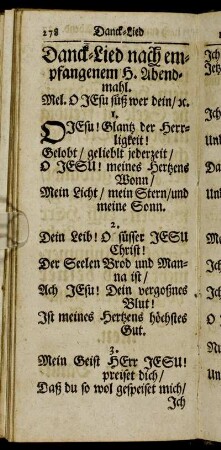 278 Danck-Lied
Danck-Lied nach em-
pfangenem H. Abend-
mahl.
Mel. O JEsu süß wer dein/ ꝛc.
1.
O JEsu! Glantz der Herr-
ligkeit!
Gelobt/ geliebt jederzeit/
O JESU! meines Hertzens
Wonn/
Mein Licht/ mein Stern/und
meine Sonn.
2.
Dein Leib! O süsser JESU
Christ!
Der Seelen Brod und Man-
na ist/
Ach JEsu! Dein vergoßnes
Blut!
Ist meines Hertzens höchstes
Gut.
3.
Mein Geist HErr JESU!
preiset dich/
Daß du so wol gespeiset mich/
Ich